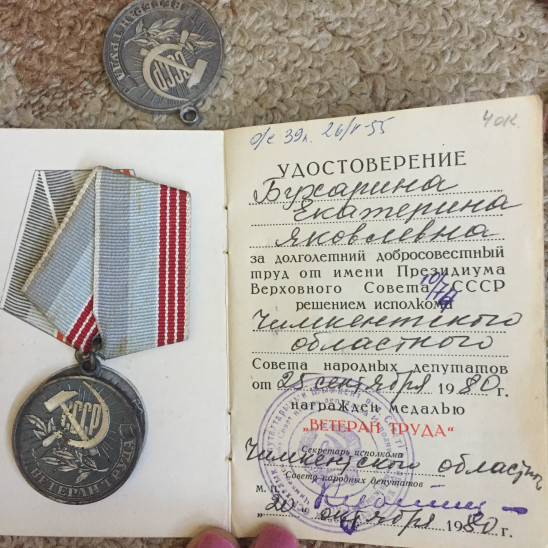 ВЕТЕРАН ТРУДА
СССР
о/с 39л. 26/V-55
УДОСТОВЕРЕНИЕ
Бухарина
Екатерина
Яковлевна
за долголетний добросовестный
труд от имени Президиума
Верховного Совета СССР
решением исполкома
Чимкентского
областного
Совета народных депутатов
от 25 сентября 1980 г.
награжден медалью
„ВЕТЕРАН ТРУДА“
Секретарь исполкома
Чимкентского областн
Совета народных депутатов
М. П.
„20“ октября 1980 г.
СССР
ВЕТЕРАН ТРУДА